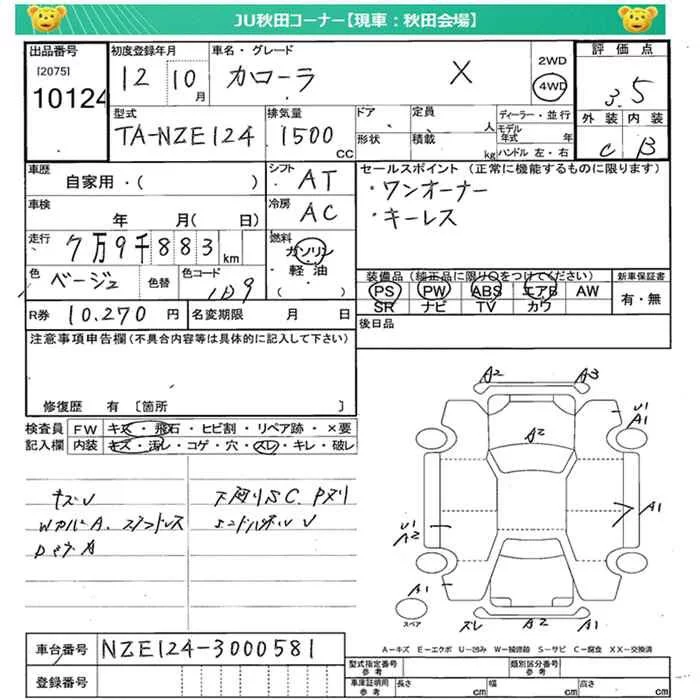 JU秋田コーナー【現車：秋田会場】
出品番号
[2075]
10124
初度登録年月
12 10月
車名・グレード
カローラ X
2WD
4WD
評価点
3.5
外装 内装
C B
型式
TA-NZE124
排気量
1500 CC
ドア
形状
定員 人
積載 kg
ディーラー・並行
モデル年式 年
ハンドル 左・右
車歴
自家用・( )
シフト
AT
車検
年 月( 日)
冷房
AC
走行
7万9千883 km
燃料
ガソリン
軽油
( )
色
ベージュ
色替
色コード
1D9
セールスポイント (正常に機能するものに限ります)
・ワンオーナー
・キーレス
装備品 (純正品に限り○をつけてください)
PS PW ABS エアB AW
SR ナビ TV カワ
新車保証書
有・無
R券 10,270 円
名変期限 月 日
後日品
注意事項申告欄 (不具合内容等は具体的に記入して下さい)
修復歴 有 〔箇所 〕
検査員記入欄
FW キズ・飛石・ヒビ割・リペア跡・×要
内装 キズ・汚レ・コゲ・穴・スレ・キレ・破レ
キズU
下廻りSC、Pヌリ
A2 A3
U1
A1
A2
A1
U1
A2
A1
スレ A2 A1
スペア
A-キズ E-エクボ U-凹み W-補修跡 S-サビ C-腐食 XX-交換済
車台番号 NZE124-3000581
登録番号
型式指定番号
参考
類別区分番号
参考
車庫証明用
参考
長さ cm
幅 cm
高さ cm